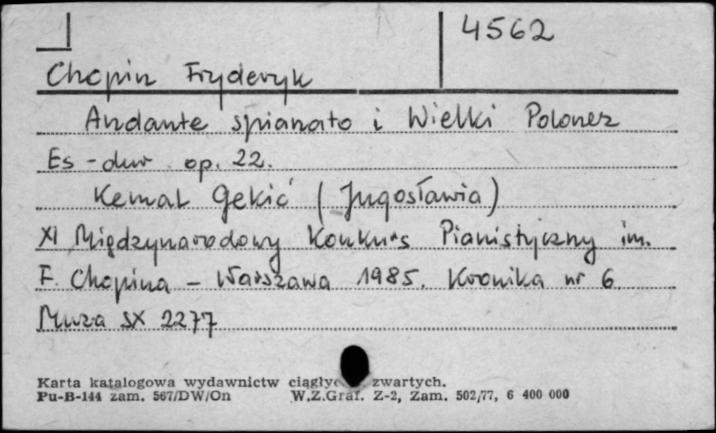 4562
Chopin Fryderyk
Andante spianato i Wielki Polonez
Es-dur op. 22.
Kemal Gekić (Jugosławia)
XI Międzynarodowy Konkurs Pianistyczny im.
F. Chopina - Warszawa 1985. Kronika nr 6.
Muza SX 2277
Karta katalogowa wydawnictw zwartych.
Pu-B-144 zam. 567/DW/On W.Z.Graf. Z-2, Zam. 502/77, 6 400 000